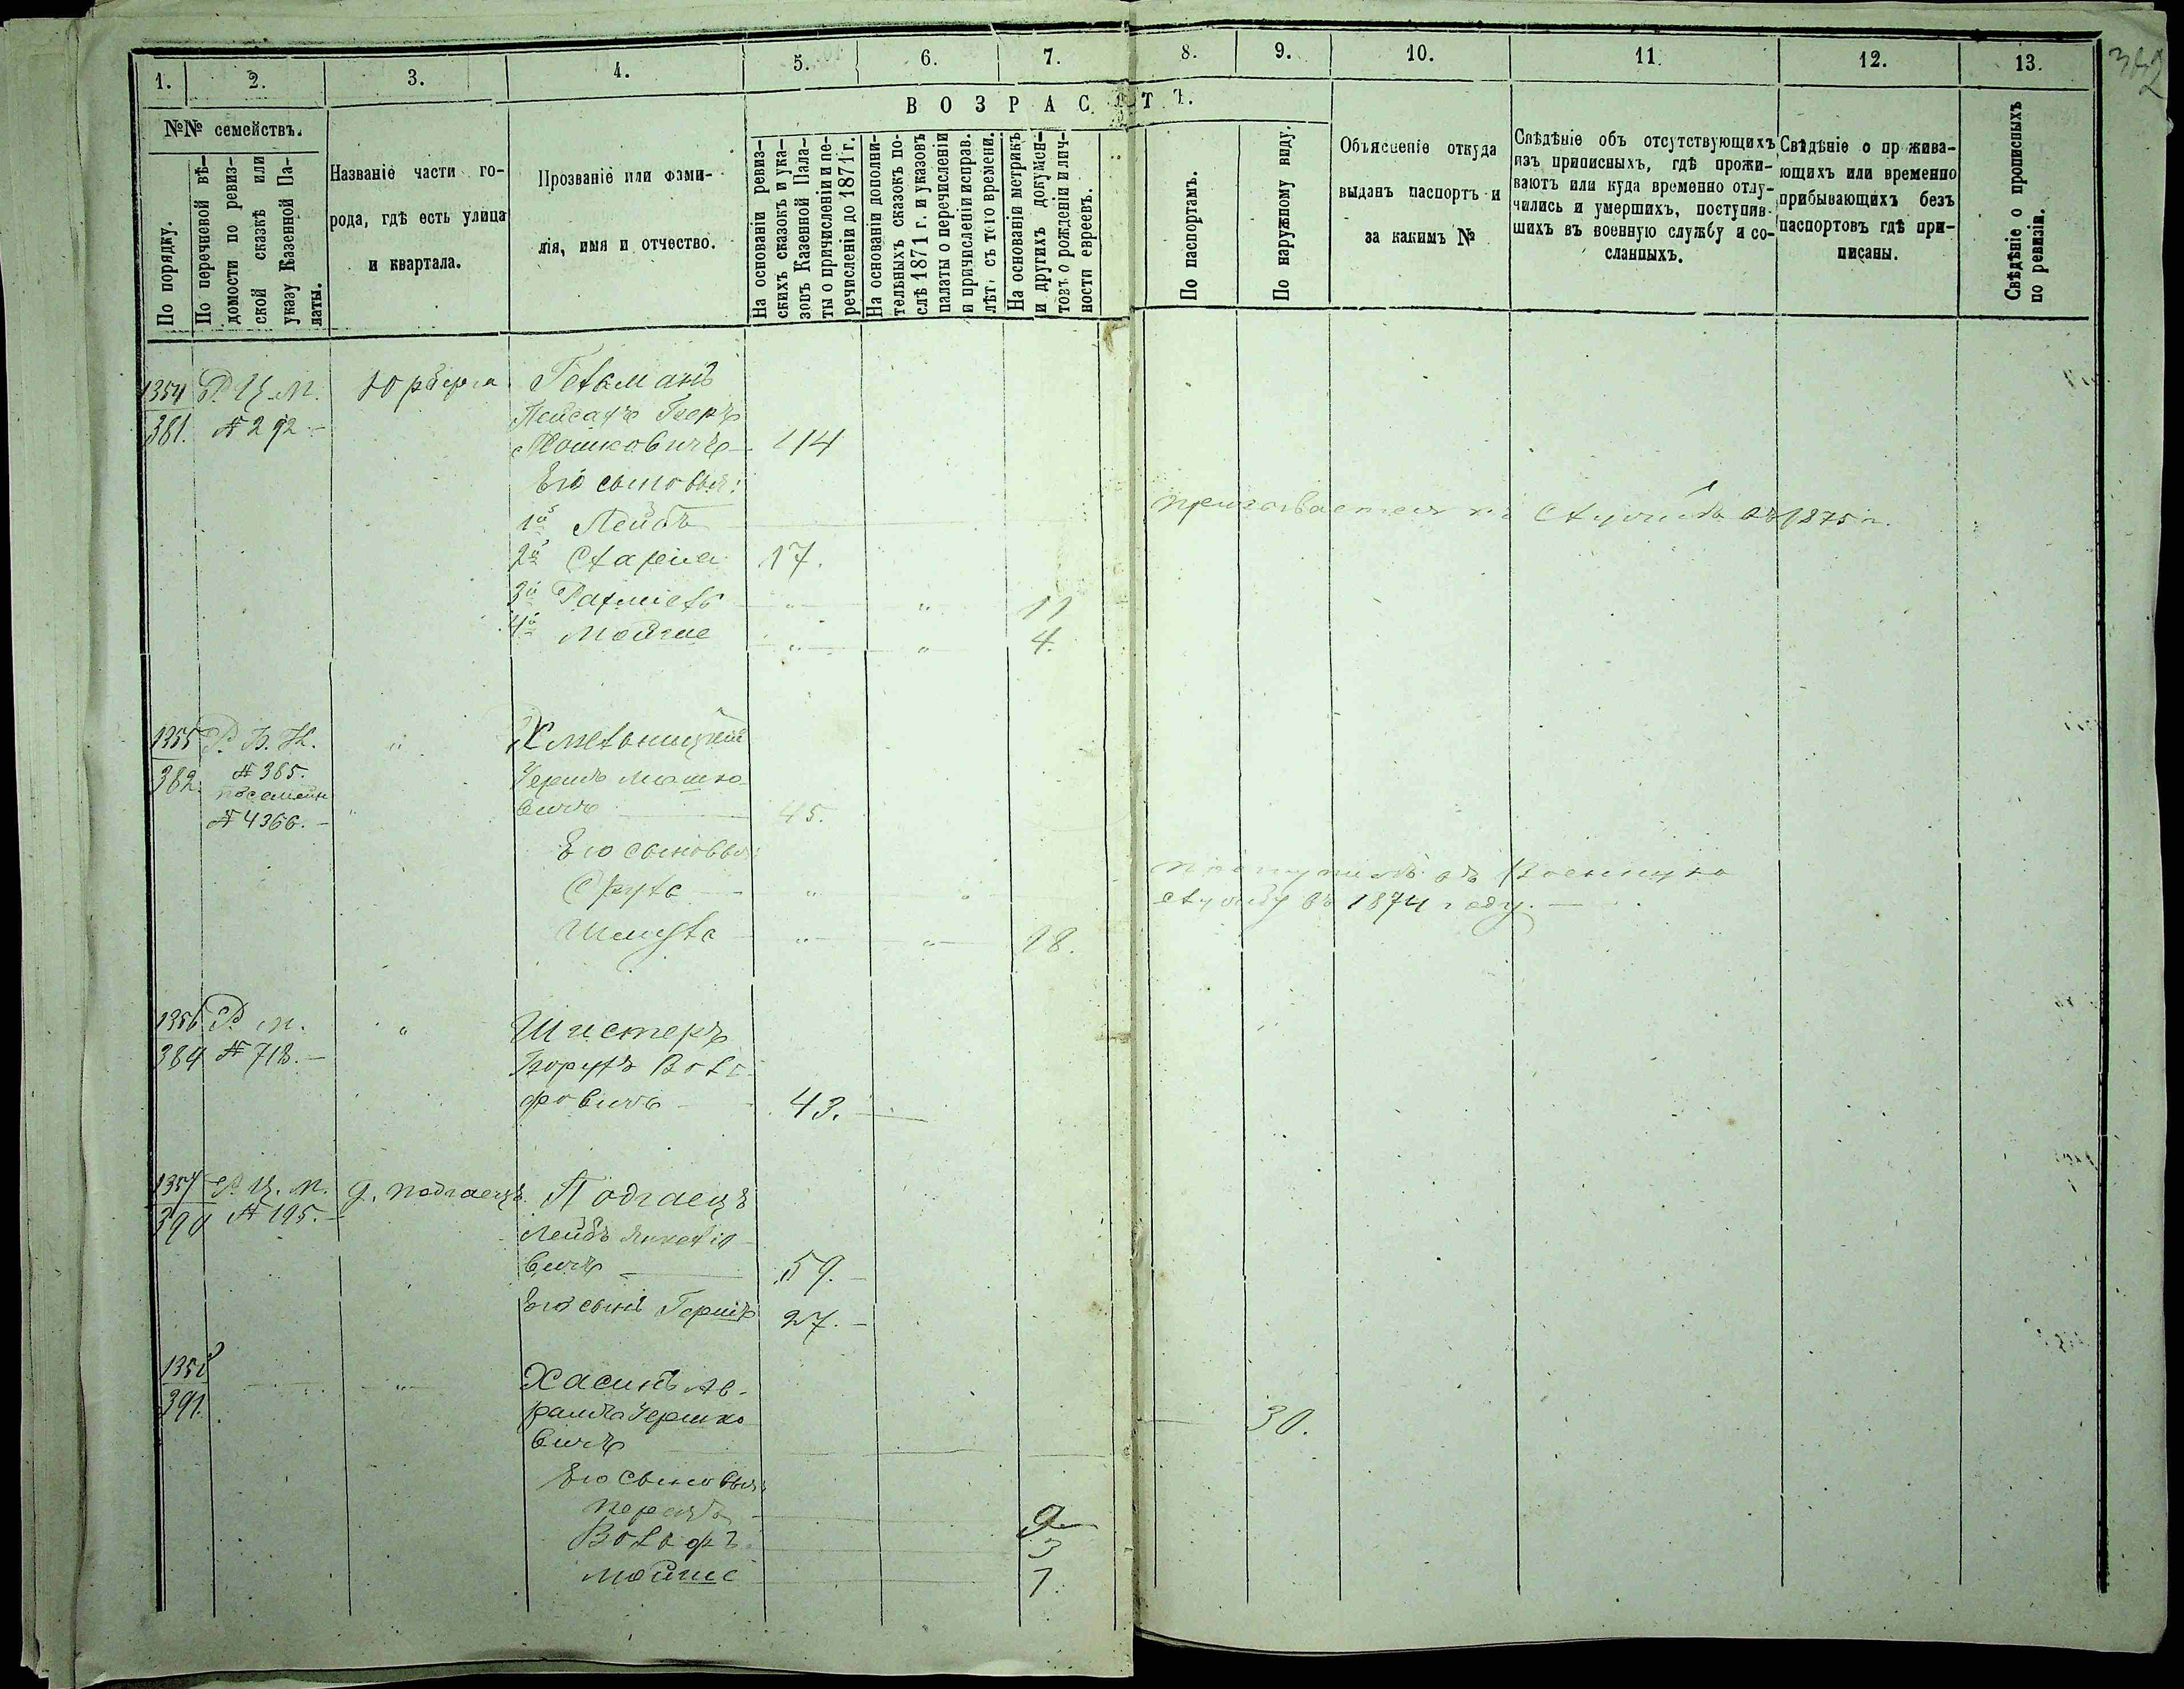 1. 2. 3. 4. 5. 6. 7. 8. 9. 10. 11. 12. 13.
№№ семействъ.
По порядку.
По перечневой вѣ-
домости по ревиз-
ской сказкѣ или
указу Казенной Па-
латы.
Названіе части го-
рода, гдѣ есть улица
и квартала.
Прозваніе или фами-
лія, имя и отчество.
ВОЗРАСТЪ.
На основаніи ревиз-
скихъ сказокъ и ука-
зовъ Казенной Пала-
ты о причисленіи и пе-
речисленіи до 1871 г.
На основаніи дополни-
тельныхъ сказокъ по-
слѣ 1871 г. и указовъ
палаты о перечисленіи
и причисленіи исправ.
лѣт. съ того времени.
На основаніи метрикъ
и другихъ докумен-
товъ о рожденіи и лич-
ности евреевъ.
По паспортамъ.
По наружному виду.
Объясненіе откуда
выданъ паспортъ и
за какимъ №
Свѣдѣніе объ отсутствующихъ
изъ приписныхъ, гдѣ прожи-
ваютъ или куда временно отлу-
чились и умершихъ, поступив-
шихъ въ военную службу и со-
сланныхъ.
Свѣдѣніе о прожива-
ющихъ или временно
прибывающихъ безъ
паспортовъ гдѣ при-
писаны.
Свѣдѣніе о прописныхъ
по ревизіи.
1354 Р. Ц. М. Гетманъ
381. № 292.- Пейсахъ Беръ
Мошковичъ 44
Его сыновья:
1й Лейбъ
2й 17.
3й " " 11
4й Мойше " " 4.
1355 Р. Б. К. " Хмельницкій
382. № 385. Гершъ Мошко-
посемейн
№ 4366.- вичъ 45.
Его сыновья:
Сруль " "
поступилъ въ Военную
службу въ 1874 году.
Шмуль " " 18.
1356 Р. М. " Шистеръ
384 № 718.- Борухъ Воль-
фовичъ 43.
1357 Р. Ц. М. д. Подгаецъ Подгаецъ
390 № 195.- Лейбъ
вичъ 59.-
Его сынъ Гершъ 27.-
1358 " Хасинъ Ав-
391. рамъ Гершко-
вичъ 30.
Его сыновья:
9
Вольфъ 3
Мойше 1